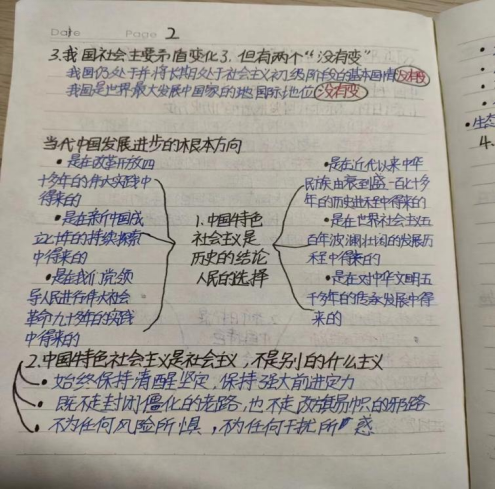 Date Page 2
3.我国社会主要矛盾变化了.但有两个“没有变”
我国仍处于并将长期处于社会主义初级阶段的基本国情没有变
我国是世界最大发展中国家的地国际地位没有变
当代中国发展进步的根本方向
•是在改革开放四
十多年的伟大实践中
得来的
•是在新中国成
立七十年的持续探索
中得来的
•是在我们党领
导人民进行伟大社会
革命九十多年的实践
中得来的
1.中国特色
社会主义是
历史的结论
人民的选择
•是在近代以来中华
民族由衰到盛一百七十多
年的历史进程中得来的
•是在世界社会主义五
百年波澜壮阔的发展历
程中得来的
•是在对中华文明五
千多年的传承发展中得
来的
2.中国特色社会主义是社会主义,不是别的什么主义
•始终保持清醒坚定,保持强大前进定力
•既不走封闭僵化的老路,也不走改旗易帜的邪路
•不为任何风险所惧,不为任何干扰所惑
•生态
4.